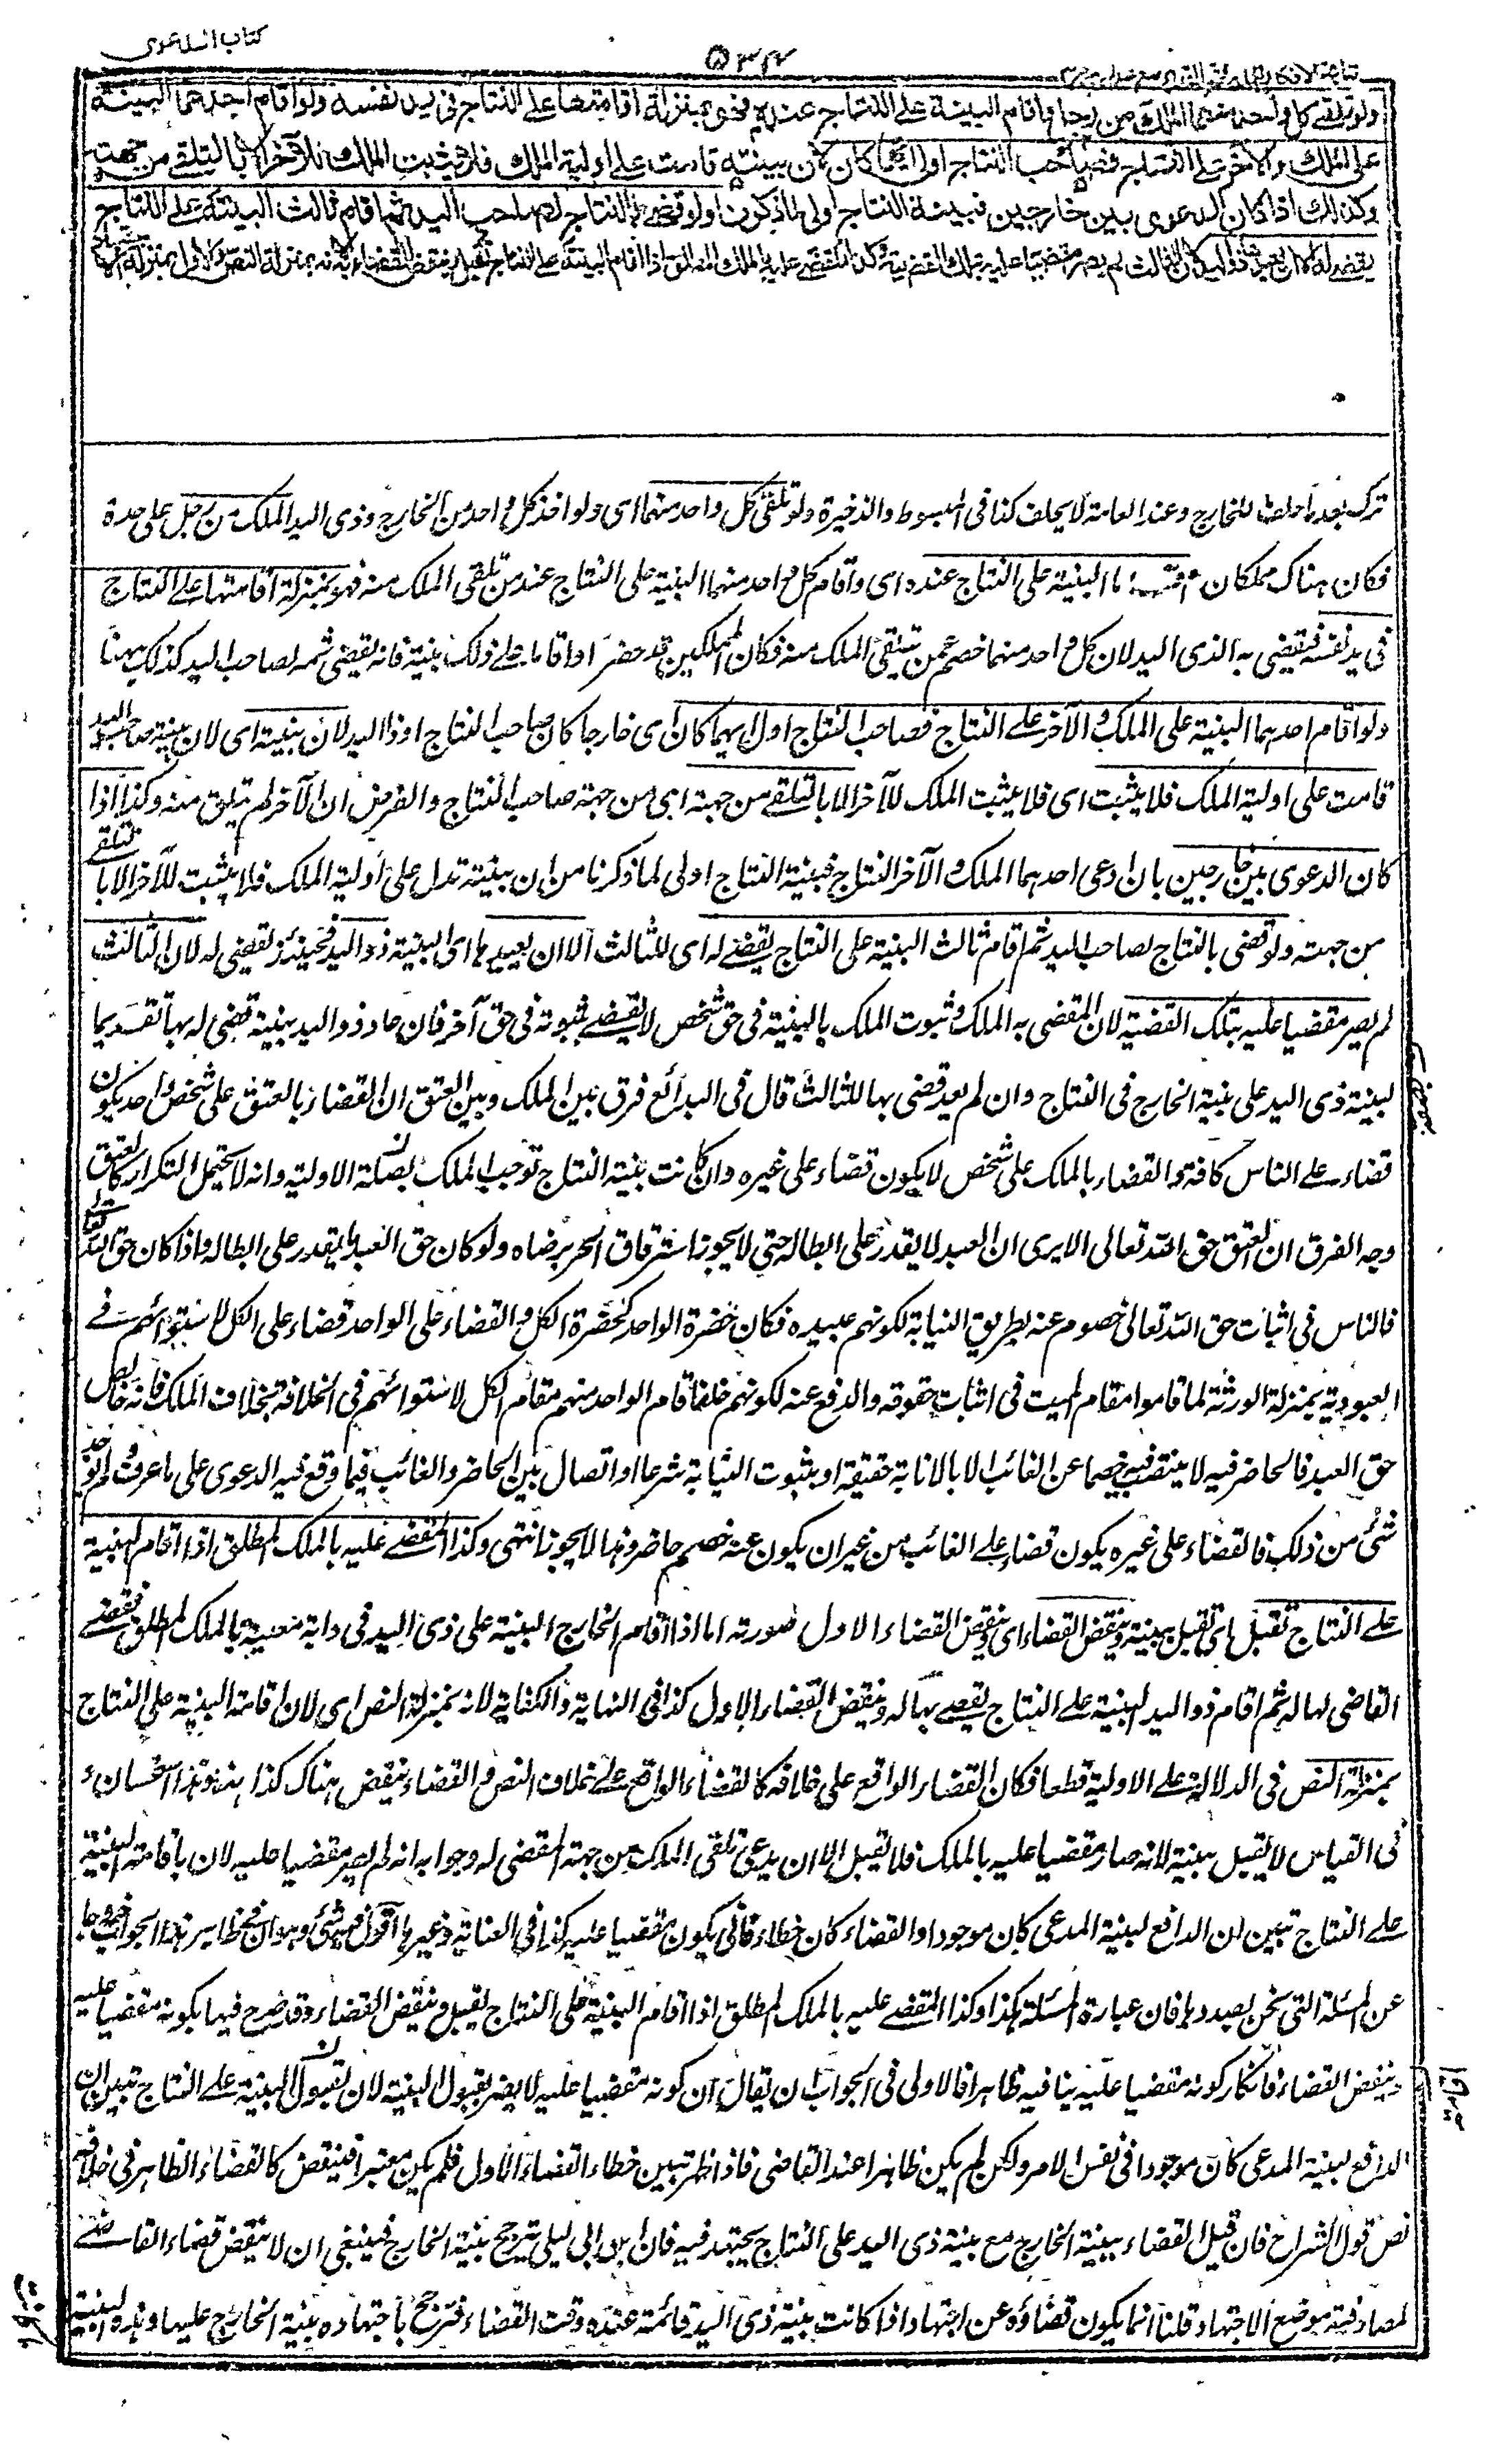 كتاب الدعوى
۵۳۴
نتائج الافكار تكملة فتح القدير مع هداية جلد ۳
ولو تلقى كل واحد منهما الملك من رجل واقام البينة على النتاج عنده فهو بمنزلة اقامتها على النتاج في يد نفسه ولو اقام احدهما البينة
على الملك والآخر على النتاج فصاحب النتاج اولى ايهما كان لان بينته قامت على اولية الملك فلا يثبت الملك للآخر الا بالتلقي من جهته
وكذلك اذا كان الدعوى بين خارجين فبينة النتاج اولى لما ذكرنا ولو قضى بالنتاج لصاحب اليد ثم اقام ثالث البينة على النتاج
يقضى له الا ان يعيدها ذو اليد لان الثالث لم يصر مقضيا عليه بتلك القضية وكذا المقضى عليه بالملك المطلق اذا اقام البينة على النتاج تقبل وينقض القضاء لانه بمنزلة النص والاول بمنزلة الاجتهاد
ترك بعد ما حلف للخارج وعند العامة لا يحلف كذا في المبسوط والذخيرة ولو تلقى كل واحد منهما اى ولو اخذ كل واحد من الخارج وذى اليد الملك من رجل على حدة
فكان هناك مملكان واقاما البينة على النتاج عنده اى واقام كل واحد منهما البينة على النتاج عند من تلقى الملك منه فهو بمنزلة اقامتها على النتاج
في يد نفسه فيقضى به لذى اليد لان كل واحد منهما خصم عمن تلقى الملك منه فكان المملكين قد حضرا واقاما على ذلك بينة فانه يقضى ثمه لصاحب اليد كذلك ههنا
ولو اقام احدهما البينة على الملك والآخر على النتاج فصاحب النتاج اولى ايهما كان اى خارجا كان صاحب النتاج او ذا اليد لان بينته اى لان بينة صاحب اليد
قامت على اولية الملك فلا يثبت اى فلا يثبت الملك للآخر الا بالتلقى من جهته اى من جهة صاحب النتاج والفرض ان الآخر لم يتلق منه وكذا اذا
كان الدعوى بين خارجين بان ادعى احدهما الملك والآخر النتاج فبينة النتاج اولى لما ذكرنا من ان بينته تدل على اولية الملك فلا يثبت للآخر الا بالتلقى
من جهته ولو قضى بالنتاج لصاحب اليد ثم اقام ثالث البينة على النتاج يقضى له اى للثالث الا ان يعيدها اى البينة ذو اليد فحينئذ يقضى له لان الثالث
لم يصر مقضيا عليه بتلك القضية لان المقضى به الملك وثبوت الملك بالبينة في حق شخص لا يقتضى ثبوته في حق آخر فان عاد ذو اليد ببينة قضى له بها تقديما
لبينة ذى اليد على بينة الخارج في النتاج وان لم يعد قضى بها للثالث قال في البدائع فرق بين الملك وبين العتق ان القضاء بالعتق على شخص واحد يكون
قضاء على الناس كافة والقضاء بالملك على شخص لا يكون قضاء على غيره وان كانت بينة النتاج توجب الملك بصفة الاولية وانه لا يحتمل التكرار كالعتق
وجه الفرق ان العتق حق الله تعالى الا يرى ان العبد لا يقدر على ابطاله حتى لا يجوز استرقاق الحر برضاه ولو كان حق العبد لقدر على ابطاله واذا كان حق الله تعالى
فالناس في اثبات حق الله تعالى خصوم عنه بطريق النيابة لكونهم عبيده فكان حضرة الواحد كحضرة الكل والقضاء على الواحد قضاء على الكل لاستوائهم في
العبودية بمنزلة الورثة لما قاموا مقام الميت في اثبات حقوقه والدفع عنه لكونهم خلفا قام الواحد منهم مقام الكل لاستوائهم في الخلافة بخلاف الملك فانه خالص
حق العبد فالحاضر فيه لا ينتصب خصما عن الغائب الا بالانابة حقيقة او بثبوت النيابة شرعا او اتصال بين الحاضر والغائب فيما وقع فيه الدعوى على ما عرف ولم يوجد
شئ من ذلك فالقضاء على غيره يكون قضاء على الغائب من غير ان يكون عنه خصم حاضر وهذا لا يجوز انتهى وكذا المقضى عليه بالملك المطلق اذا اقام البينة
على النتاج تقبل اى تقبل بينته وينقض القضاء اى وينقض القضاء الاول صورته اما اذا اقام الخارج البينة على ذى اليد في دابة معينة بالملك المطلق فقضى
القاضى بها له ثم اقام ذو اليد البينة على النتاج يقضى بها له وينقض القضاء الاول كذا في النهاية والكفاية لانه بمنزلة النص اى لان اقامة البينة على النتاج
بمنزلة النص في الدلالة على الاولية قطعا فكان القضاء الواقع على خلافه كالقضاء الواقع على خلاف النص والقضاء ينقض هناك كذا ههنا وهذا استحسان و
في القياس لا يقبل بينته لانه صار مقضيا عليه بالملك فلا تقبل الا ان يدعى تلقى الملك من جهة المقضى له وجوابه انه لم يصر مقضيا عليه لان باقامته البينة
على النتاج تبين ان الدافع لبينة المدعى كان موجودا والقضاء كان خطاء فانى يكون مقضيا عليه كذا في العناية وغيرها اقول فيه شئ وهو ان في ظاهر هذا الجواب خروجا
عن المسئلة التى نحن بصددها فان عبارة المسئلة هكذا وكذا المقضى عليه بالملك المطلق اذا اقام البينة على النتاج يقبل وينقض القضاء وقد صرح فيها بكونه مقضيا عليه
وينقض القضاء فانكار كونه مقضيا عليه ينافيه ظاهرا فالاولى في الجواب ان يقال ان كونه مقضيا عليه لا يضر بقبول البينة لان بقبول البينة على النتاج تبين ان
الدافع لبينة المدعى كان موجودا في نفس الامر ولكن لم يكن ظاهرا عند القاضى فاذا ظهر تبين خطاء القضاء الاول فلم يكن معتبرا فينقض كالقضاء الظاهر في خلافه
نص قول الشراح فان قيل القضاء ببينة الخارج مع بينة ذى اليد على النتاج مجتهد فيه فان ابن ابى ليلى يرجح بينة الخارج فينبغى ان لا ينقض قضاء القاضى
لمصادفته موضع الاجتهاد قلنا انما يكون قضاؤه عن اجتهاد اذا كانت بينة ذى اليد قائمة عنده وقت القضاء فترجح باجتهاده بينة الخارج عليها وهذه البينة